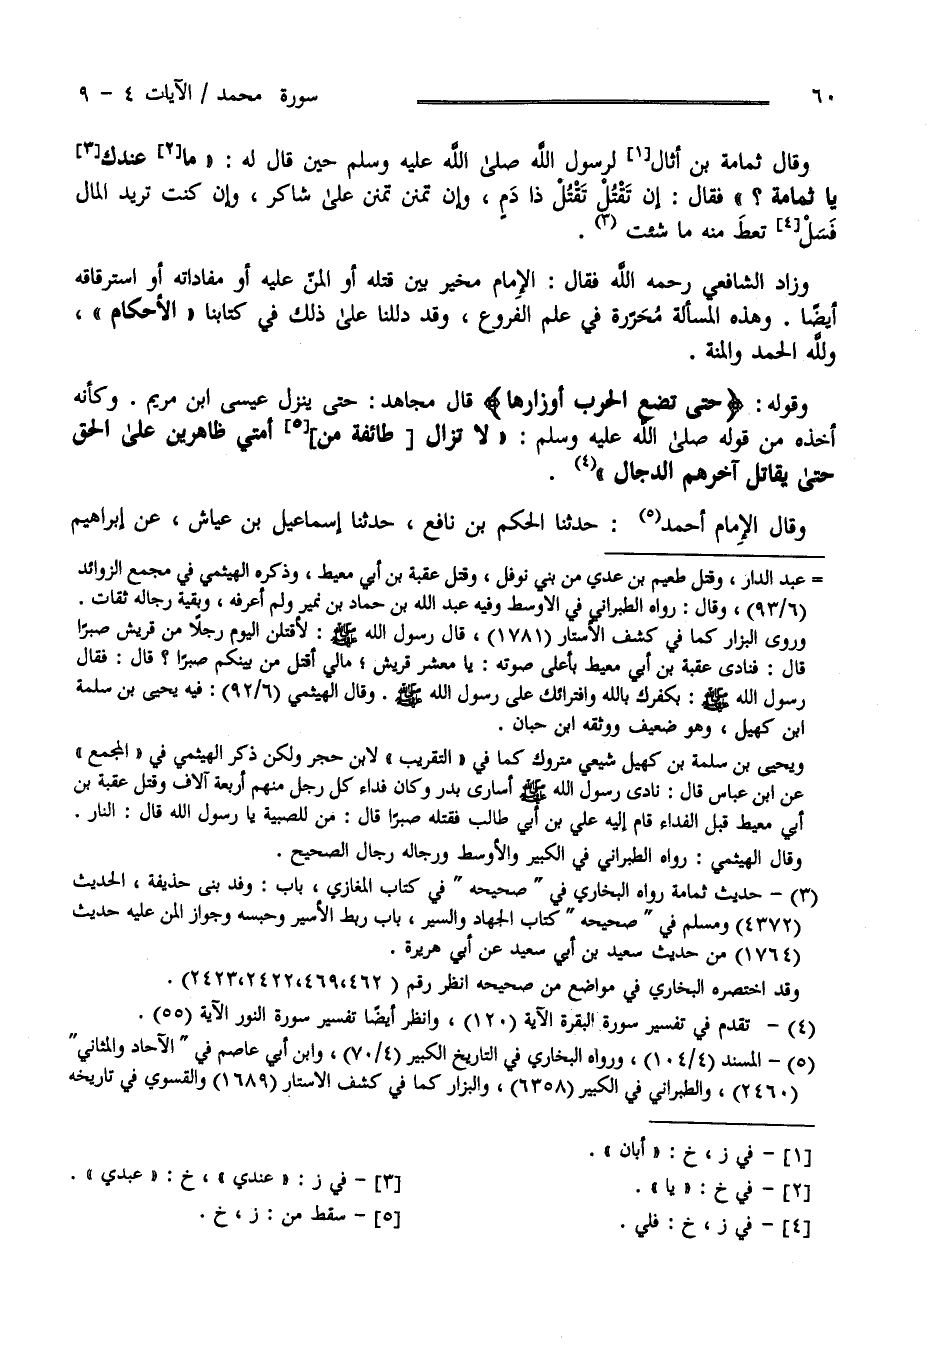 ٦٠ سورة محمد / الآيات ٤ - ٩
وقال ثمامة بن أثال[١] لرسول اللَّه صلىٰ اللَّه عليه وسلم حين قال له : « ما[٢] عندك[٣]
يا ثمامة ؟ » فقال : إن تَقْتُلْ تَقْتُلْ ذا دَمٍ ، وإن تمنن تمنن علىٰ شاكر ، وإن كنت تريد المال
فَسَلْ[٤] تعطَ منه ما شئت (٣) .
وزاد الشافعي رحمه اللَّه فقال : الإمام مخير بين قتله أو المنّ عليه أو مفاداته أو استرقاقه
أيضًا . وهذه المسألة مُحَرّرة في علم الفروع ، وقد دللنا علىٰ ذلك في كتابنا « الأحكام » ،
وللَّه الحمد والمنة .
وقوله : ﴿حتى تضع الحرب أوزارها﴾ قال مجاهد : حتى ينزل عيسى ابن مريم . وكأنه
أخذه من قوله صلىٰ اللَّه عليه وسلم : « لا تزال [ طائفة من][٥] أمتي ظاهرين علىٰ الحق
حتىٰ يقاتل آخرهم الدجال »(٤) .
وقال الإمام أحمد(٥) : حدثنا الحكم بن نافع ، حدثنا إسماعيل بن عياش ، عن إبراهيم
= عبد الدار ، وقتل طعيم بن عدي من بني نوفل ، وقتل عقبة بن أبي معيط ، وذكره الهيثمي في مجمع الزوائد
(٩٣/٦) ، وقال : رواه الطبراني في الاوسط وفيه عبد الله بن حماد بن نمير ولم أعرفه ، وبقية رجاله ثقات .
وروى البزار كما في كشف الأستار (١٧٨١) ، قال رسول الله ﷺ : لأقتلن اليوم رجلًا من قريش صبرًا
قال : فنادى عقبة بن أبي معيط بأعلى صوته : يا معشر قريش ؛ مالي أقتل من بينكم صبرًا ؟ قال : فقال
رسول الله ﷺ : بكفرك بالله وافترائك على رسول الله ﷺ . وقال الهيثمي (٩٢/٦) : فيه يحيى بن سلمة
ابن كهيل ، وهو ضعيف ووثقه ابن حبان .
ويحيى بن سلمة بن كهيل شيعي متروك كما في « التقريب » لابن حجر ولكن ذكر الهيثمي في « المجمع »
عن ابن عباس قال : نادى رسول الله ﷺ أسارى بدر وكان فداء كل رجل منهم أربعة آلاف وقتل عقبة بن
أبي معيط قبل الفداء قام إليه علي بن أبي طالب فقتله صبرًا قال : من للصبية يا رسول الله قال : النار .
وقال الهيثمي : رواه الطبراني في الكبير والأوسط ورجاله رجال الصحيح .
(٣) - حديث ثمامة رواه البخاري في " صحيحه " في كتاب المغازي ، باب : وفد بنى حذيفة ، الحديث
(٤٣٧٢) ومسلم في " صحيحه " كتاب الجهاد والسير ، باب ربط الأسير وحبسه وجواز المن عليه حديث
(١٧٦٤) من حديث سعيد بن أبي سعيد عن أبي هريرة .
وقد اختصره البخاري في مواضع من صحيحه انظر رقم ( ٤٦٢،٤٦٩،٢٤٢٢،٢٤٢٣) .
(٤) - تقدم في تفسير سورة البقرة الآية (١٢٠) ، وانظر أيضًا تفسير سورة النور الآية (٥٥) .
(٥) - المسند (١٠٤/٤) ، ورواه البخاري في التاريخ الكبير (٧٠/٤) ، وابن أبي عاصم في " الآحاد والمثاني "
(٢٤٦٠) ، والطبراني في الكبير (٦٣٥٨) ، والبزار كما في كشف الاستار (١٦٨٩) والقسوي في تاريخه
[١] - في ز ، خ : « أبان » .
[٢] - في خ : « يا » . [٣] - في ز : « عندي » ، خ : « عبدي » .
[٤] - في ز ، خ : فلي . [٥] - سقط من : ز ، خ .